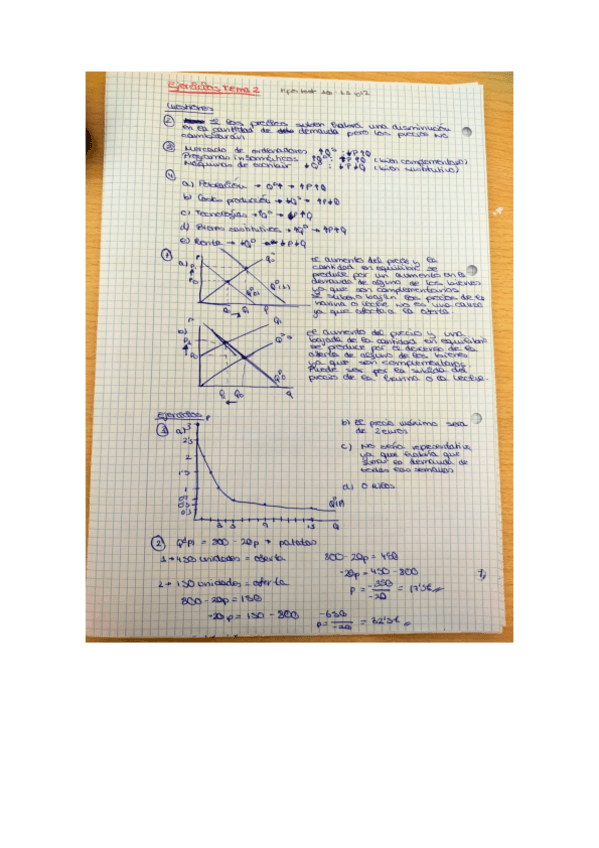 Ejercicios Tema 2
Cuestiones
2 Si los precios suben habrá una disminución
en la cantidad de demanda pero los precios no
cambiarán
3 Mercado de ordenadores ↑Qº: ↓P↑Q
Programas informáticos ↑Qº: ↑P↑Q (bien complementario)
Máquinas de escribir ↓Qº: ↓P↓Q (bien sustitutivo)
4
a) Población → Qº↑ → ↑P↑Q
b) Costes producción → ↓Qˢ → ↑P↓Q
c) Tecnologías → ↑Qˢ → ↓P↑Q
d) Bienes sustitutivos → ↑Qº → ↑P↑Q
e) Renta → ↓Qº → ↓P↓Q
7
a)
El aumento del precio y la
cantidad en equilibrio se
produce por un aumento en la
demanda de alguno de los bienes
ya que son complementarios
Si suben o bajan los precios de la
harina o leche no es una causa
ya que afecta a la oferta.
b)
El aumento del precio y una
bajada de la cantidad en equilibrio
se produce por el descenso de la
oferta de alguno de los bienes
ya que son complementarios
Puede ser por la subida del
precio de la harina o la leche.
Ejercicios
1 a)
b) El precio máximo sera
de 2 euros
c) No sería representativa
ya que habría que
demanda de
todas las semanas
d) 0 kilos
2 Qᵈ(P) = 800 - 20p → patatas
1 → 450 unidades = oferta
800 - 20p = 450
-20p = 450 - 800
p = -350 / -20 = 17'5€
2 → 150 unidades = oferta
800 - 20p = 150
-20p = 150 - 800
p = -650 / -20 = 32'5€